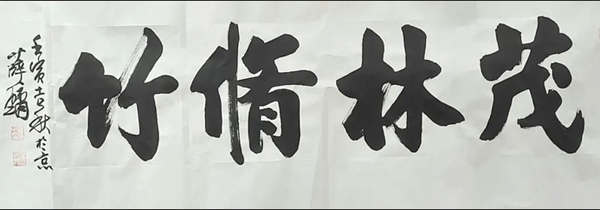 茂林脩竹
壬寅吉秋於京
薛